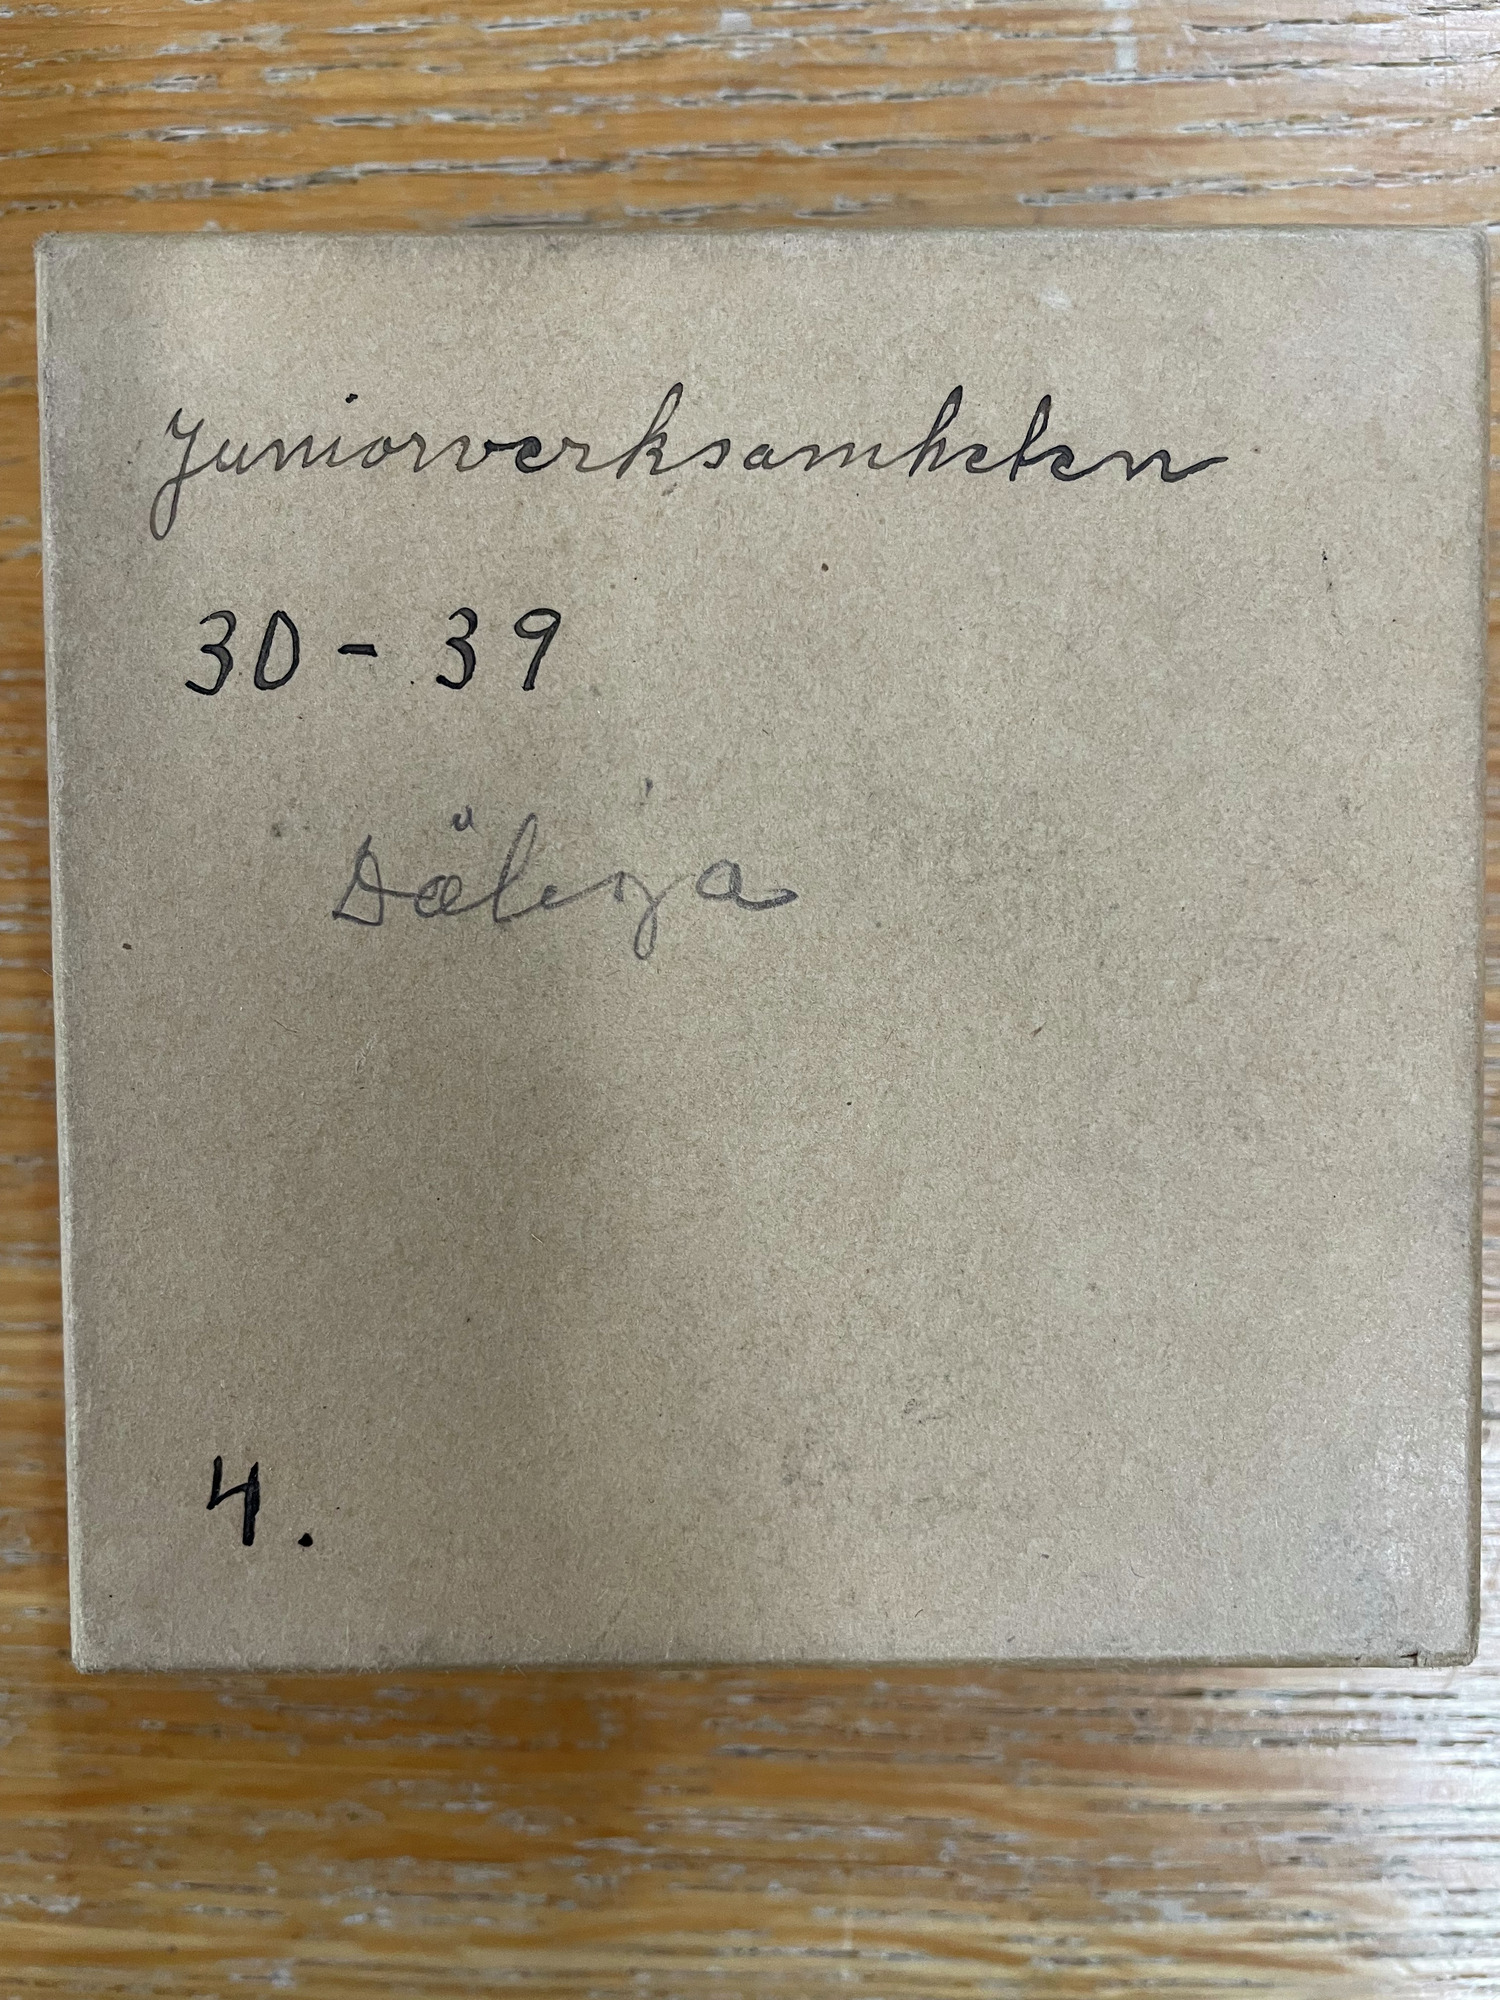 Juniorverksamheten
30 - 39
4.